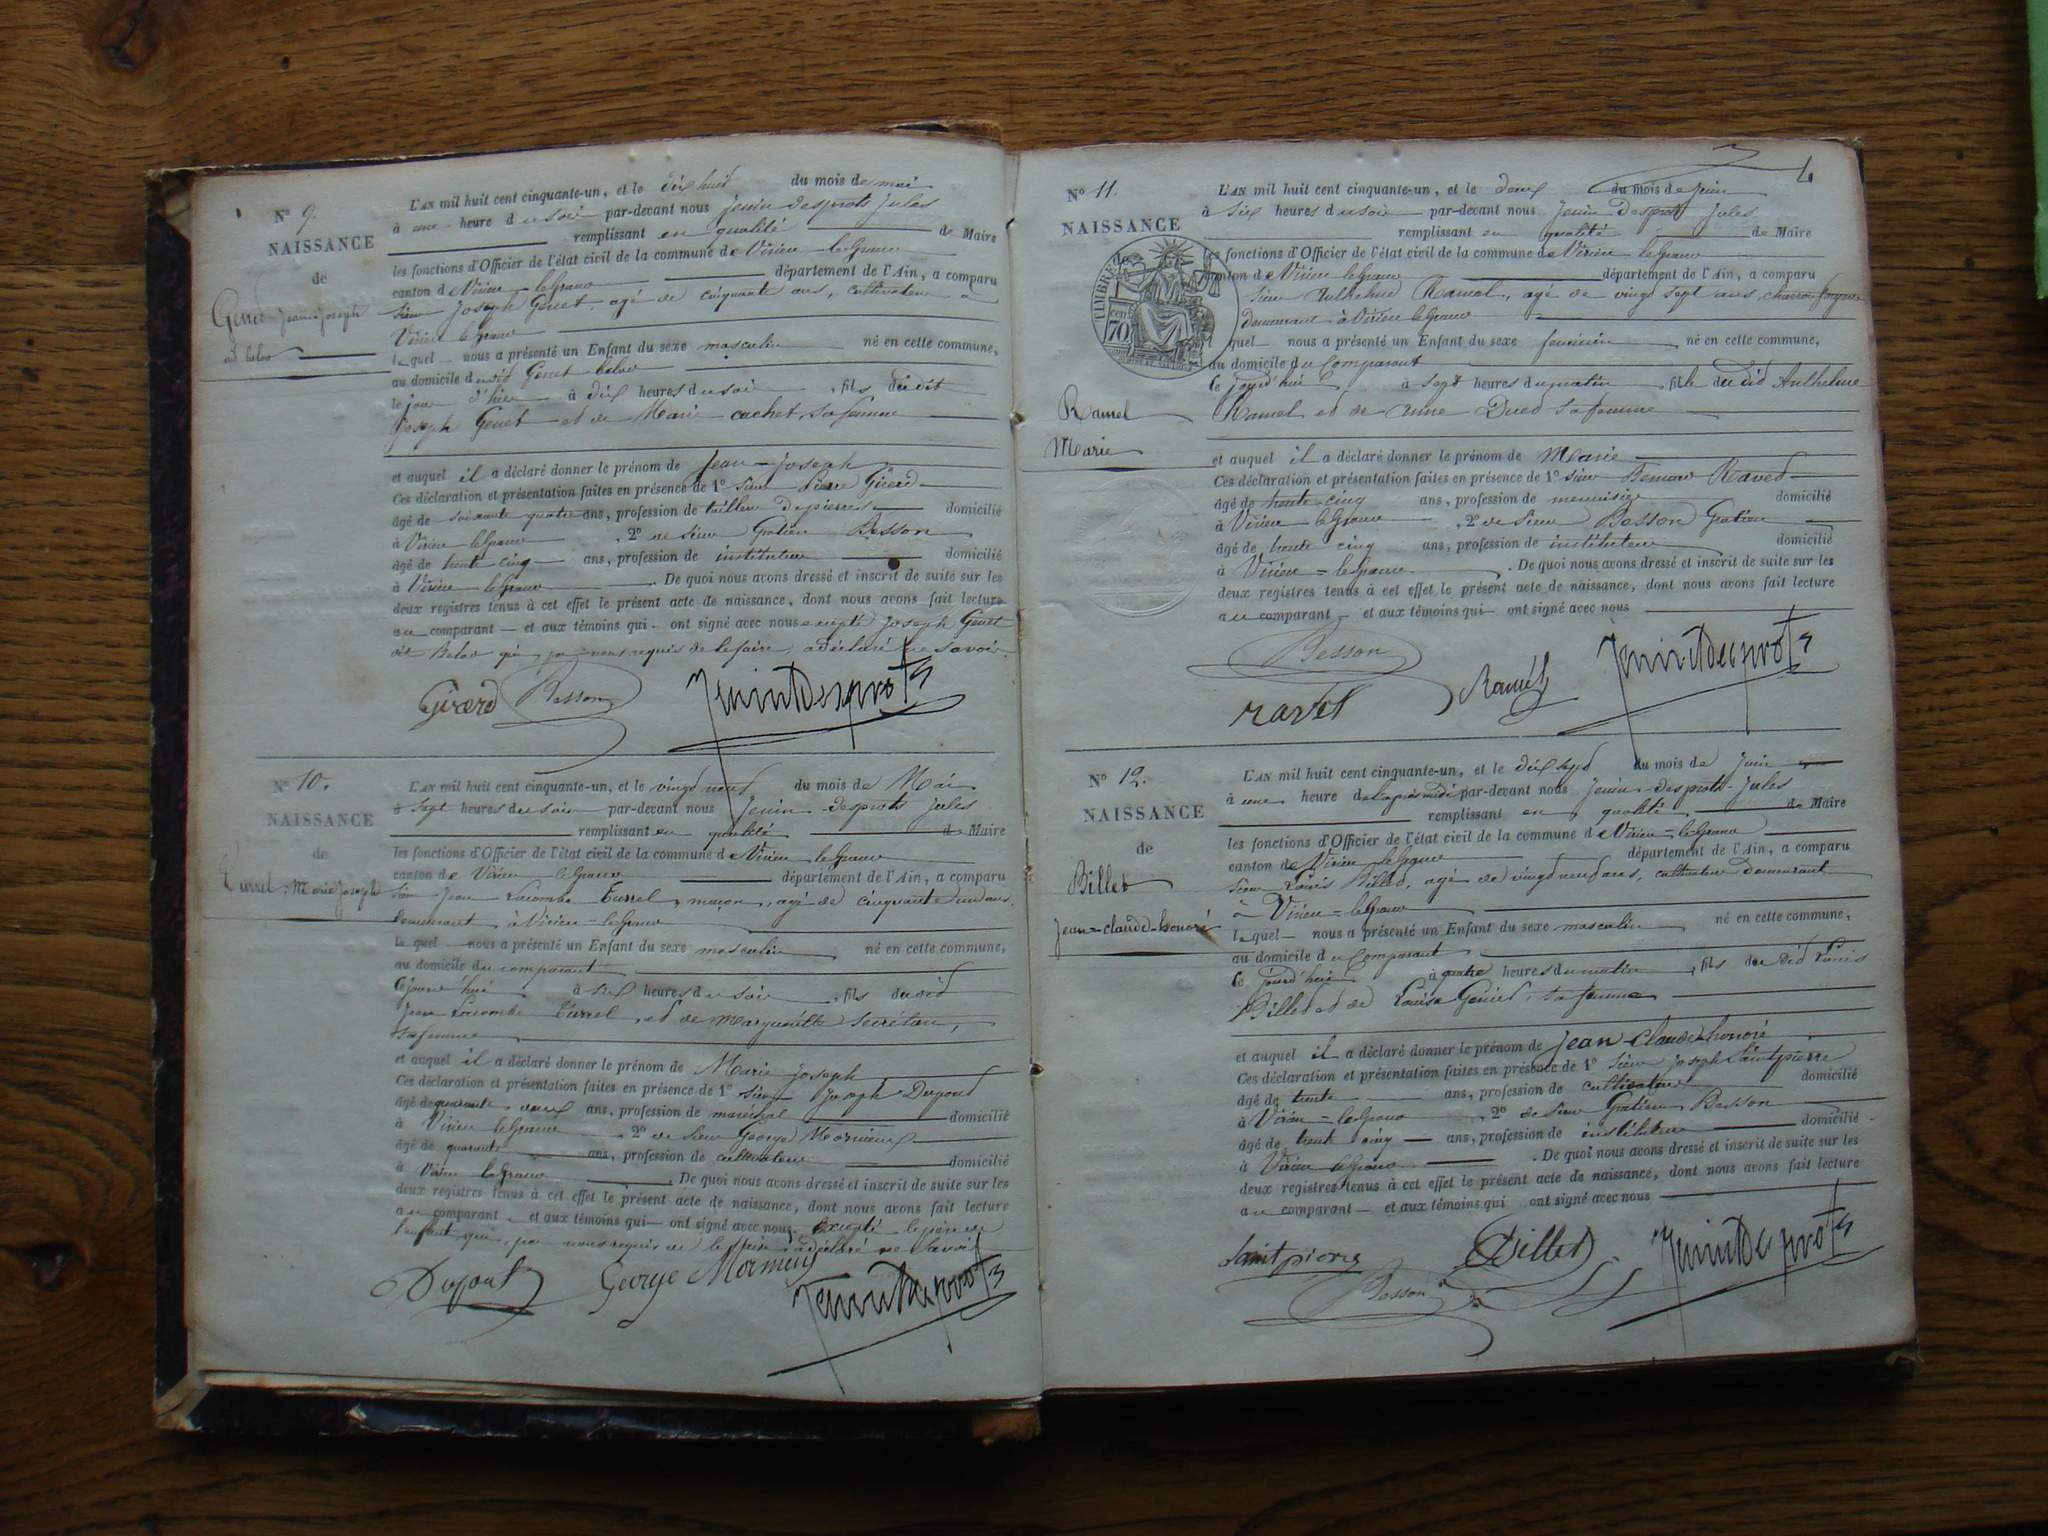 Nº 9.
NAISSANCE
de
Genet Jean-Joseph
dit belod
L'AN mil huit cent cinquante-un, et le dix huit du mois de mai
à une heure du soir par-devant nous Jenin desprots Jules
remplissant en qualité de Maire
les fonctions d'Officier de l'état civil de la commune de Virieu leGrand
canton de Virieu-leGrand département de l'Ain, a comparu
sieur Joseph Genet, agé de cinquante ans, cultivateur a
Virieu leGrand
lequel nous a présenté un Enfant du sexe masculin né en cette commune,
au domicile dudid Genet belod
le jour d'hier à dix heures du soir, fils dudit
Joseph Genet et de Marie cachet, sa femme
et auquel il a déclaré donner le prénom de Jean-Joseph
Ces déclaration et présentation faites en présence de 1º sieur Pierre Girerd
âgé de soixante quatre ans, profession de tailleur de pierres domicilié
à Virieu leGrand, 2º de sieur Gratien Besson
âgé de trente cinq ans, profession de instituteur domicilié
à Virieu leGrand. De quoi nous avons dressé et inscrit de suite sur les
deux registres tenus à cet effet le présent acte de naissance, dont nous avons fait lecture
au comparant et aux témoins qui ont signé avec nous excepté Joseph Genet
dit Belod qui, par nous requis de le faire, a déclaré ne savoir.
Girerd Besson JenindDesprots
Nº 10.
NAISSANCE
de
Turrel, Marie Joseph
L'AN mil huit cent cinquante-un, et le vingt neuf du mois de Mai
à sept heures du soir par-devant nous Jenin-desprots Jules
remplissant en qualité de Maire
les fonctions d'Officier de l'état civil de la commune de Virieu leGrand
canton de Virieu leGrand département de l'Ain, a comparu
sieur Jean Turrel, maçon, agé de cinquante un ans,
demeurant à Virieu-leGrand
lequel nous a présenté un Enfant du sexe masculin né en cette commune,
au domicile du comparant
cejourd'hui à six heures du soir, fils dudid
Jean Turrel, et de Margueritte Secrétan,
sa femme
et auquel il a déclaré donner le prénom de Marie Joseph
Ces déclaration et présentation faites en présence de 1º sieur Joseph Dupont
âgé de quarante deux ans, profession de maréchal domicilié
à Virieu leGrand, 2º de sieur George Mornieux
âgé de quarante ans, profession de cultivateur domicilié
à Virieu leGrand. De quoi nous avons dressé et inscrit de suite sur les
deux registres tenus à cet effet le présent acte de naissance, dont nous avons fait lecture
au comparant et aux témoins qui ont signé avec nous, Excepté le père de
l'enfant qui, par nous requis de le faire a déclaré ne savoir
Dupont George Mornieux JenindDesprots
4
Nº 11.
NAISSANCE
de
TIMBRE
70 CEN
Ramel
Marie
L'AN mil huit cent cinquante-un, et le deux du mois de Juin
à six heures du soir par-devant nous Jenin Desprots Jules
remplissant en qualité de Maire
les fonctions d'Officier de l'état civil de la commune de Virieu leGrand
canton de Virieu leGrand département de l'Ain, a comparu
sieur Anthelme Ramel, agé de vingt sept ans, charron forgeron
demeurant à Virieu leGrand
lequel nous a présenté un Enfant du sexe feminin né en cette commune,
au domicile du Comparant
ce jourd'hui à sept heures du matin, fille du did Anthelme
Ramel et de anne Dued sa femme
et auquel il a déclaré donner le prénom de Marie
Ces déclaration et présentation faites en présence de 1º sieur Bernard Raved
âgé de trente-cinq ans, profession de menuisier domicilié
à Virieu leGrand, 2º de sieur Besson Gratien
âgé de trente cinq ans, profession de instituteur domicilié
à Virieu=leGrand. De quoi nous avons dressé et inscrit de suite sur les
deux registres tenus à cet effet le présent acte de naissance, dont nous avons fait lecture
au comparant et aux témoins qui ont signé avec nous
Besson
ravet Ramel JenindDesprots
Nº 12.
NAISSANCE
de
Billet
Jean=claude-honoré
L'AN mil huit cent cinquante-un, et le dix sept du mois de Juin
à une heure de l'après midi par-devant nous Jenin-desprots-Jules
remplissant en qualité de Maire
les fonctions d'Officier de l'état civil de la commune de Virieu=leGrand
canton de Virieu leGrand département de l'Ain, a comparu
sieur Louis Billet, agé de vingt neuf ans, cultivateur demeurant
à Virieu=leGrand
lequel nous a présenté un Enfant du sexe masculin né en cette commune,
au domicile du Comparant
ce jourd'hui à quatre heures du matin, fils du did Louis
Billet et de Louise Genet, sa femme
et auquel il a déclaré donner le prénom de Jean-Claude-honoré
Ces déclaration et présentation faites en présence de 1º sieur Joseph Saintpierre
âgé de trente ans, profession de cultivateur domicilié
à Virieu=leGrand, 2º de sieur Gratien Besson
âgé de trente cinq ans, profession de instituteur domicilié
à Virieu leGrand. De quoi nous avons dressé et inscrit de suite sur les
deux registres tenus à cet effet le présent acte de naissance, dont nous avons fait lecture
au comparant et aux témoins qui ont signé avec nous
Saintpierre Billet JenindDesprots
Besson